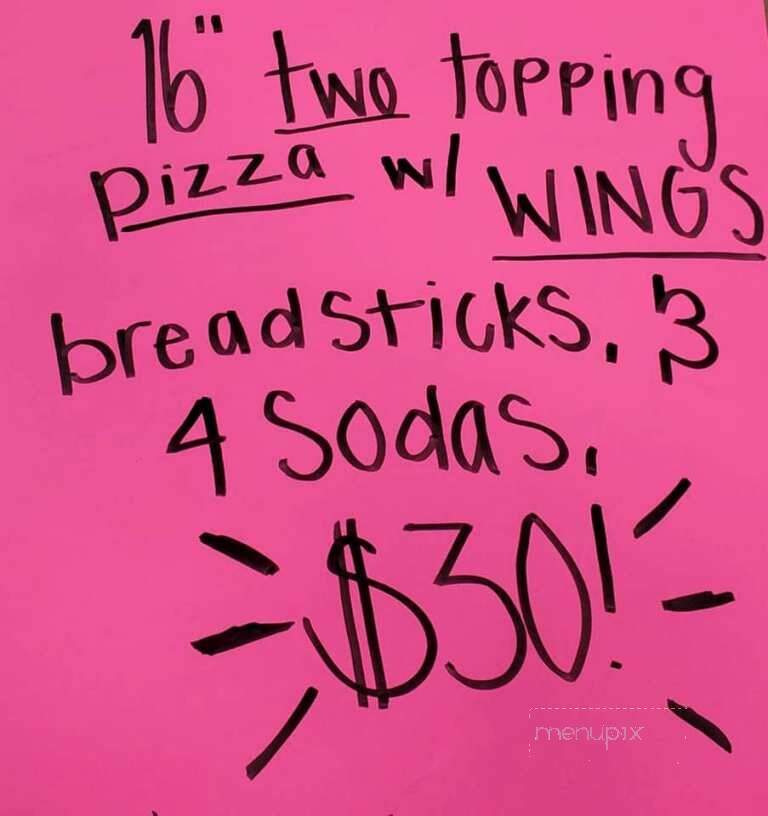 16" two topping
pizza w/ WINGS
breadsticks, &
4 sodas,
$30!
menupix